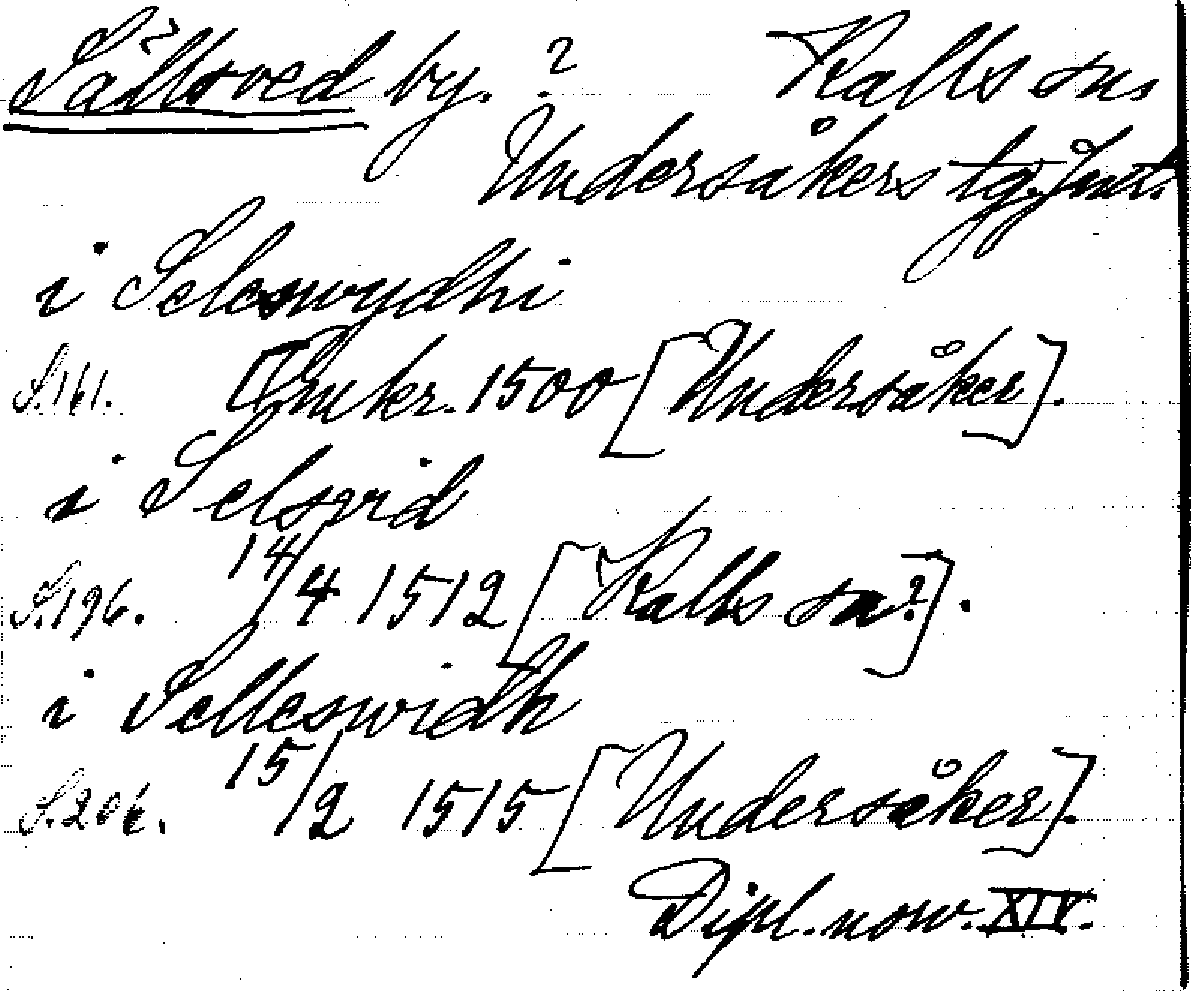 Sällsved by. ? Kalls sn.
Undersåkers tg. Jmtl.
i Seleswydhi
S.161. Omkr. 1500 [Undersåker].
i Selsvid
S.196. 14/4 1512 [Kalls sn?].
i Selleswidh
S.206. 15/2 1515 [Undersåker].
Dipl. norv. XIV.